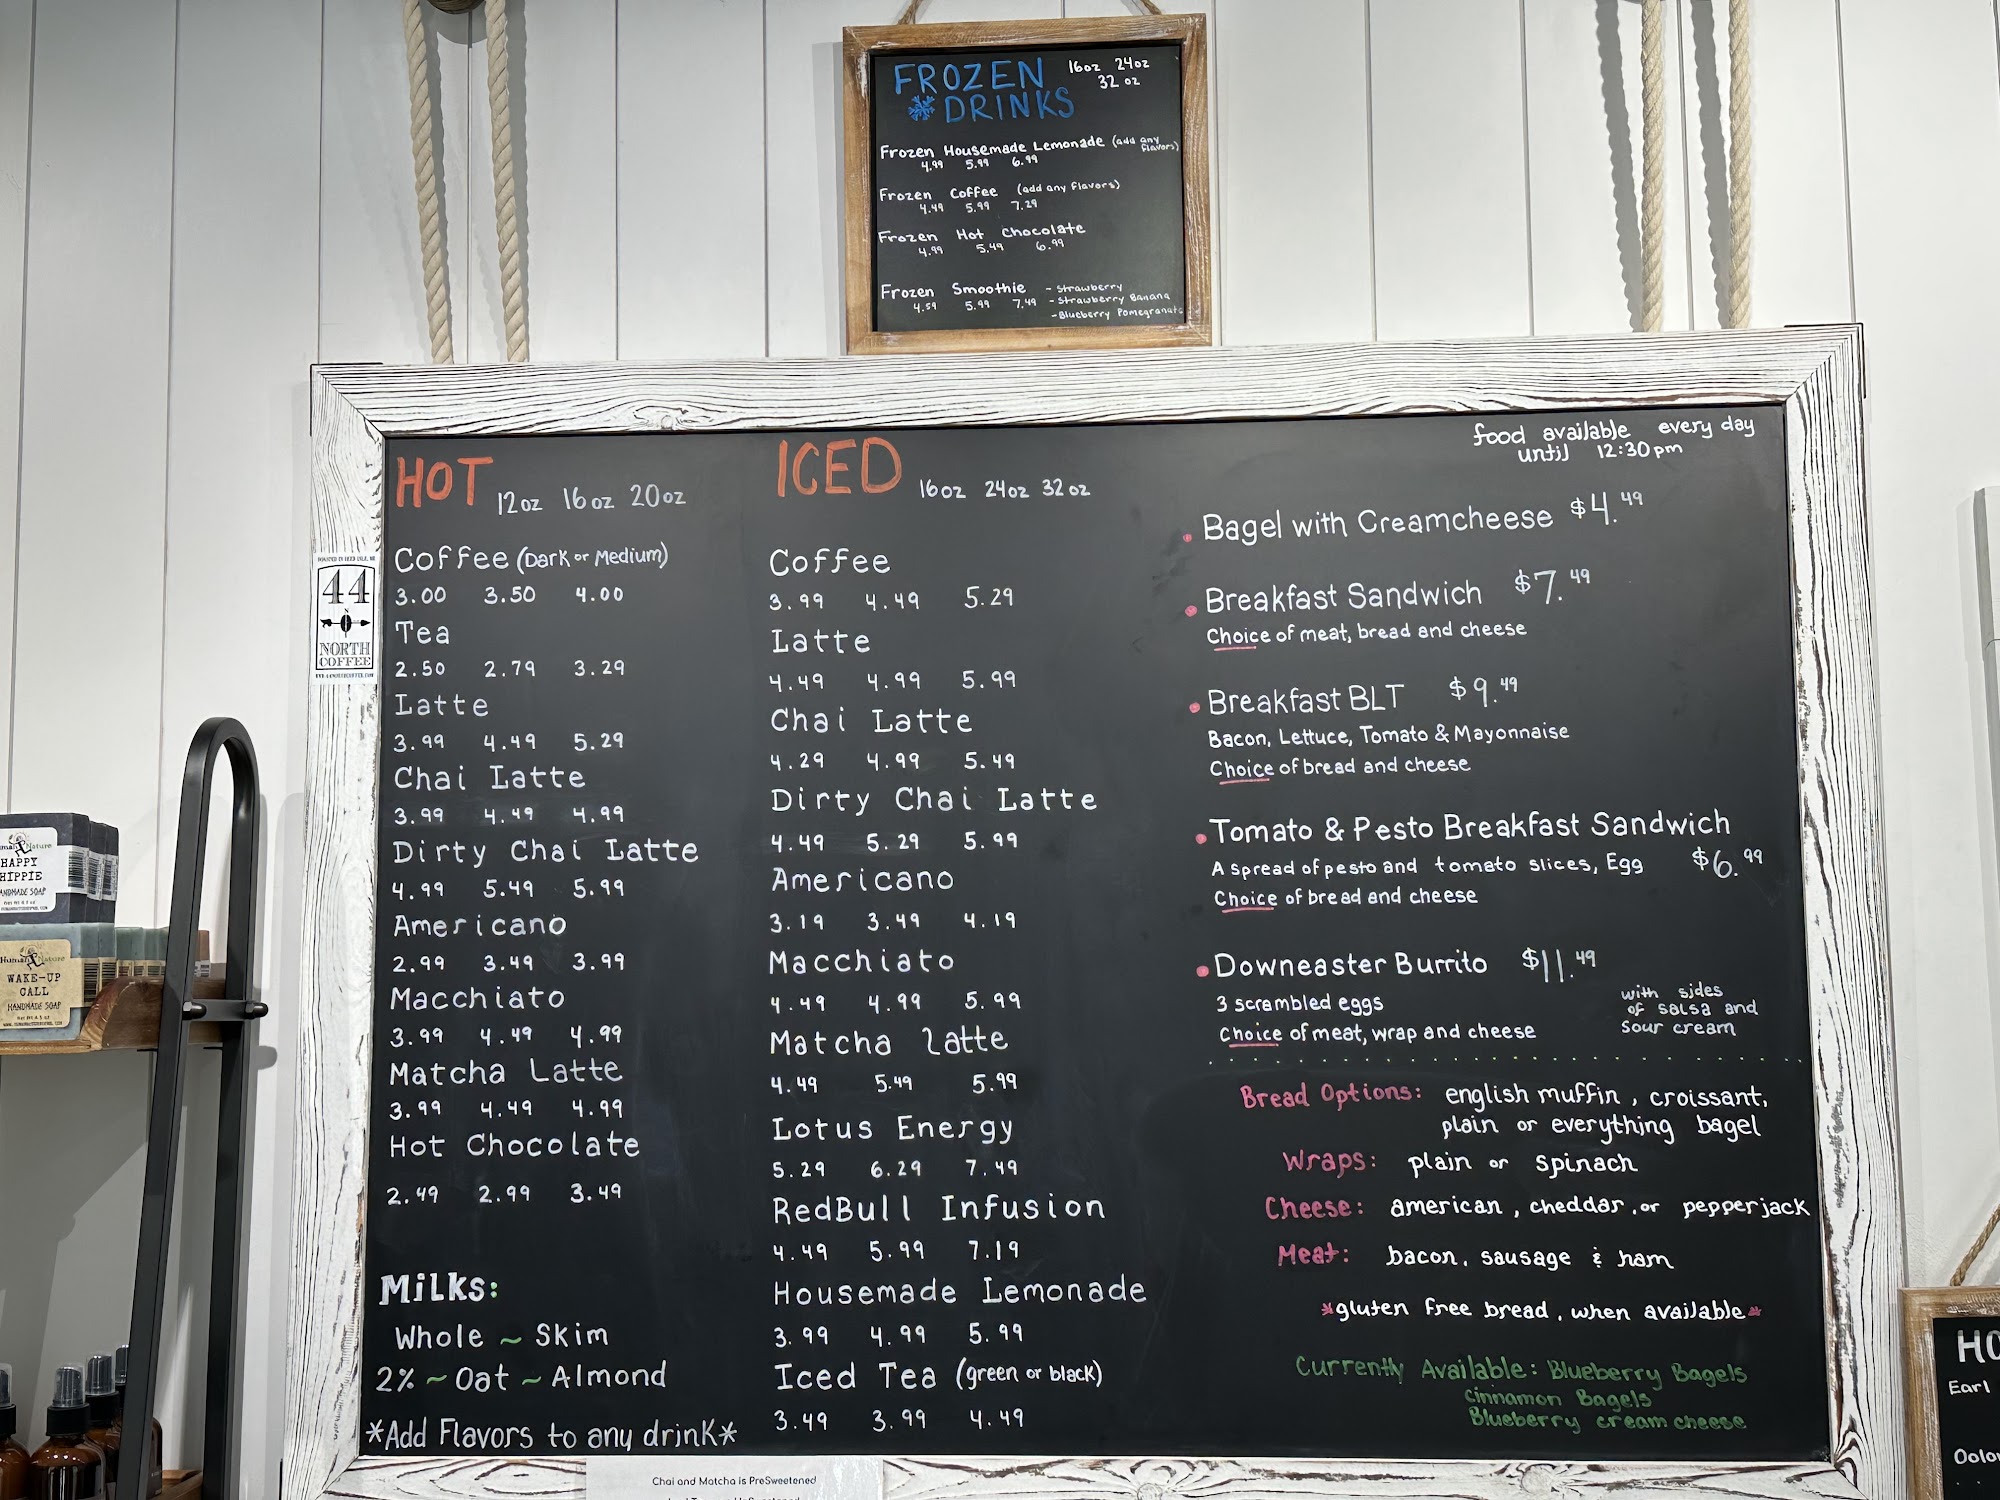 FROZEN 16oz 24oz
DRINKS 32 oz
Frozen Housemade Lemonade (add any flavors)
4.99 5.99 6.99
Frozen Coffee (add any flavors)
4.49 5.99 7.29
Frozen Hot Chocolate
4.99 5.49 6.99
Frozen Smoothie - Strawberry
4.59 5.99 7.49 - Strawberry Banana
- Blueberry Pomegranate
HOT 12oz 16oz 20oz
Coffee (Dark or Medium)
3.00 3.50 4.00
Tea
2.50 2.79 3.29
Latte
3.99 4.49 5.29
Chai Latte
3.99 4.49 4.99
Dirty Chai Latte
4.99 5.49 5.99
Americano
2.99 3.49 3.99
Macchiato
3.99 4.49 4.99
Matcha Latte
3.99 4.49 4.99
Hot Chocolate
2.49 2.99 3.49
Milks:
Whole ~ Skim
2% ~ Oat ~ Almond
*Add Flavors to any drink*
ICED 16oz 24oz 32oz
Coffee
3.99 4.49 5.29
Latte
4.49 4.99 5.99
Chai Latte
4.29 4.99 5.49
Dirty Chai Latte
4.49 5.29 5.99
Americano
3.19 3.49 4.19
Macchiato
4.49 4.99 5.99
Matcha Latte
4.49 5.49 5.99
Lotus Energy
5.29 6.29 7.49
RedBull Infusion
4.49 5.99 7.19
Housemade Lemonade
3.99 4.99 5.99
Iced Tea (green or black)
3.49 3.99 4.49
food available every day
until 12:30pm
Bagel with Creamcheese $4.49
Breakfast Sandwich $7.49
Choice of meat, bread and cheese
Breakfast BLT $9.49
Bacon, Lettuce, Tomato & Mayonnaise
Choice of bread and cheese
Tomato & Pesto Breakfast Sandwich
A spread of pesto and tomato slices, Egg $6.99
Choice of bread and cheese
Downeaster Burrito $11.49
3 scrambled eggs
Choice of meat, wrap and cheese
with sides
of salsa and
sour cream
Bread Options: english muffin, croissant,
plain or everything bagel
Wraps: plain or spinach
Cheese: american, cheddar, or pepperjack
Meat: bacon, sausage & ham
*gluten free bread, when available*
Currently Available: Blueberry Bagels
Cinnamon Bagels
Blueberry cream cheese
44
N
NORTH
COFFEE
Chai and Matcha is PreSweetened
HAPPY
HIPPIE
HANDMADE SOAP
Human Nature
WAKE-UP
CALL
HANDMADE SOAP
HO
Earl
Oolo